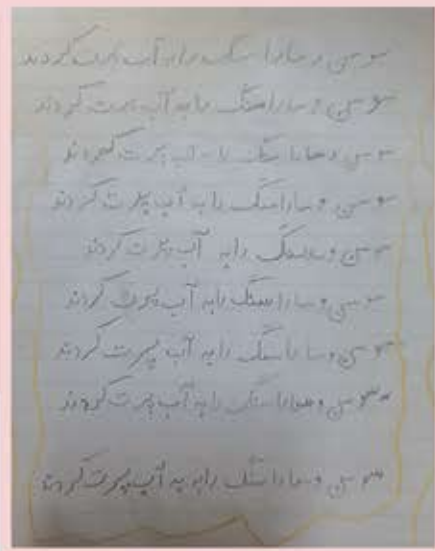 سوسن و سارا سنگ را به آب پرت کردند
سوسن و سارا سنگ را به آب پرت کردند
سوسن و سارا سنگ را به آب پرت کردند
سوسن و سارا سنگ را به آب پرت کردند
سوسن و سنگ را به آب پرت کردند
سوسن و سارا سنگ را به آب پرت کردند
سوسن و سارا سنگ را به آب پرت کردند
سوسن و سارا سنگ را به آب پرت کردند
سوسن و سارا سنگ را به آب پرت کردند